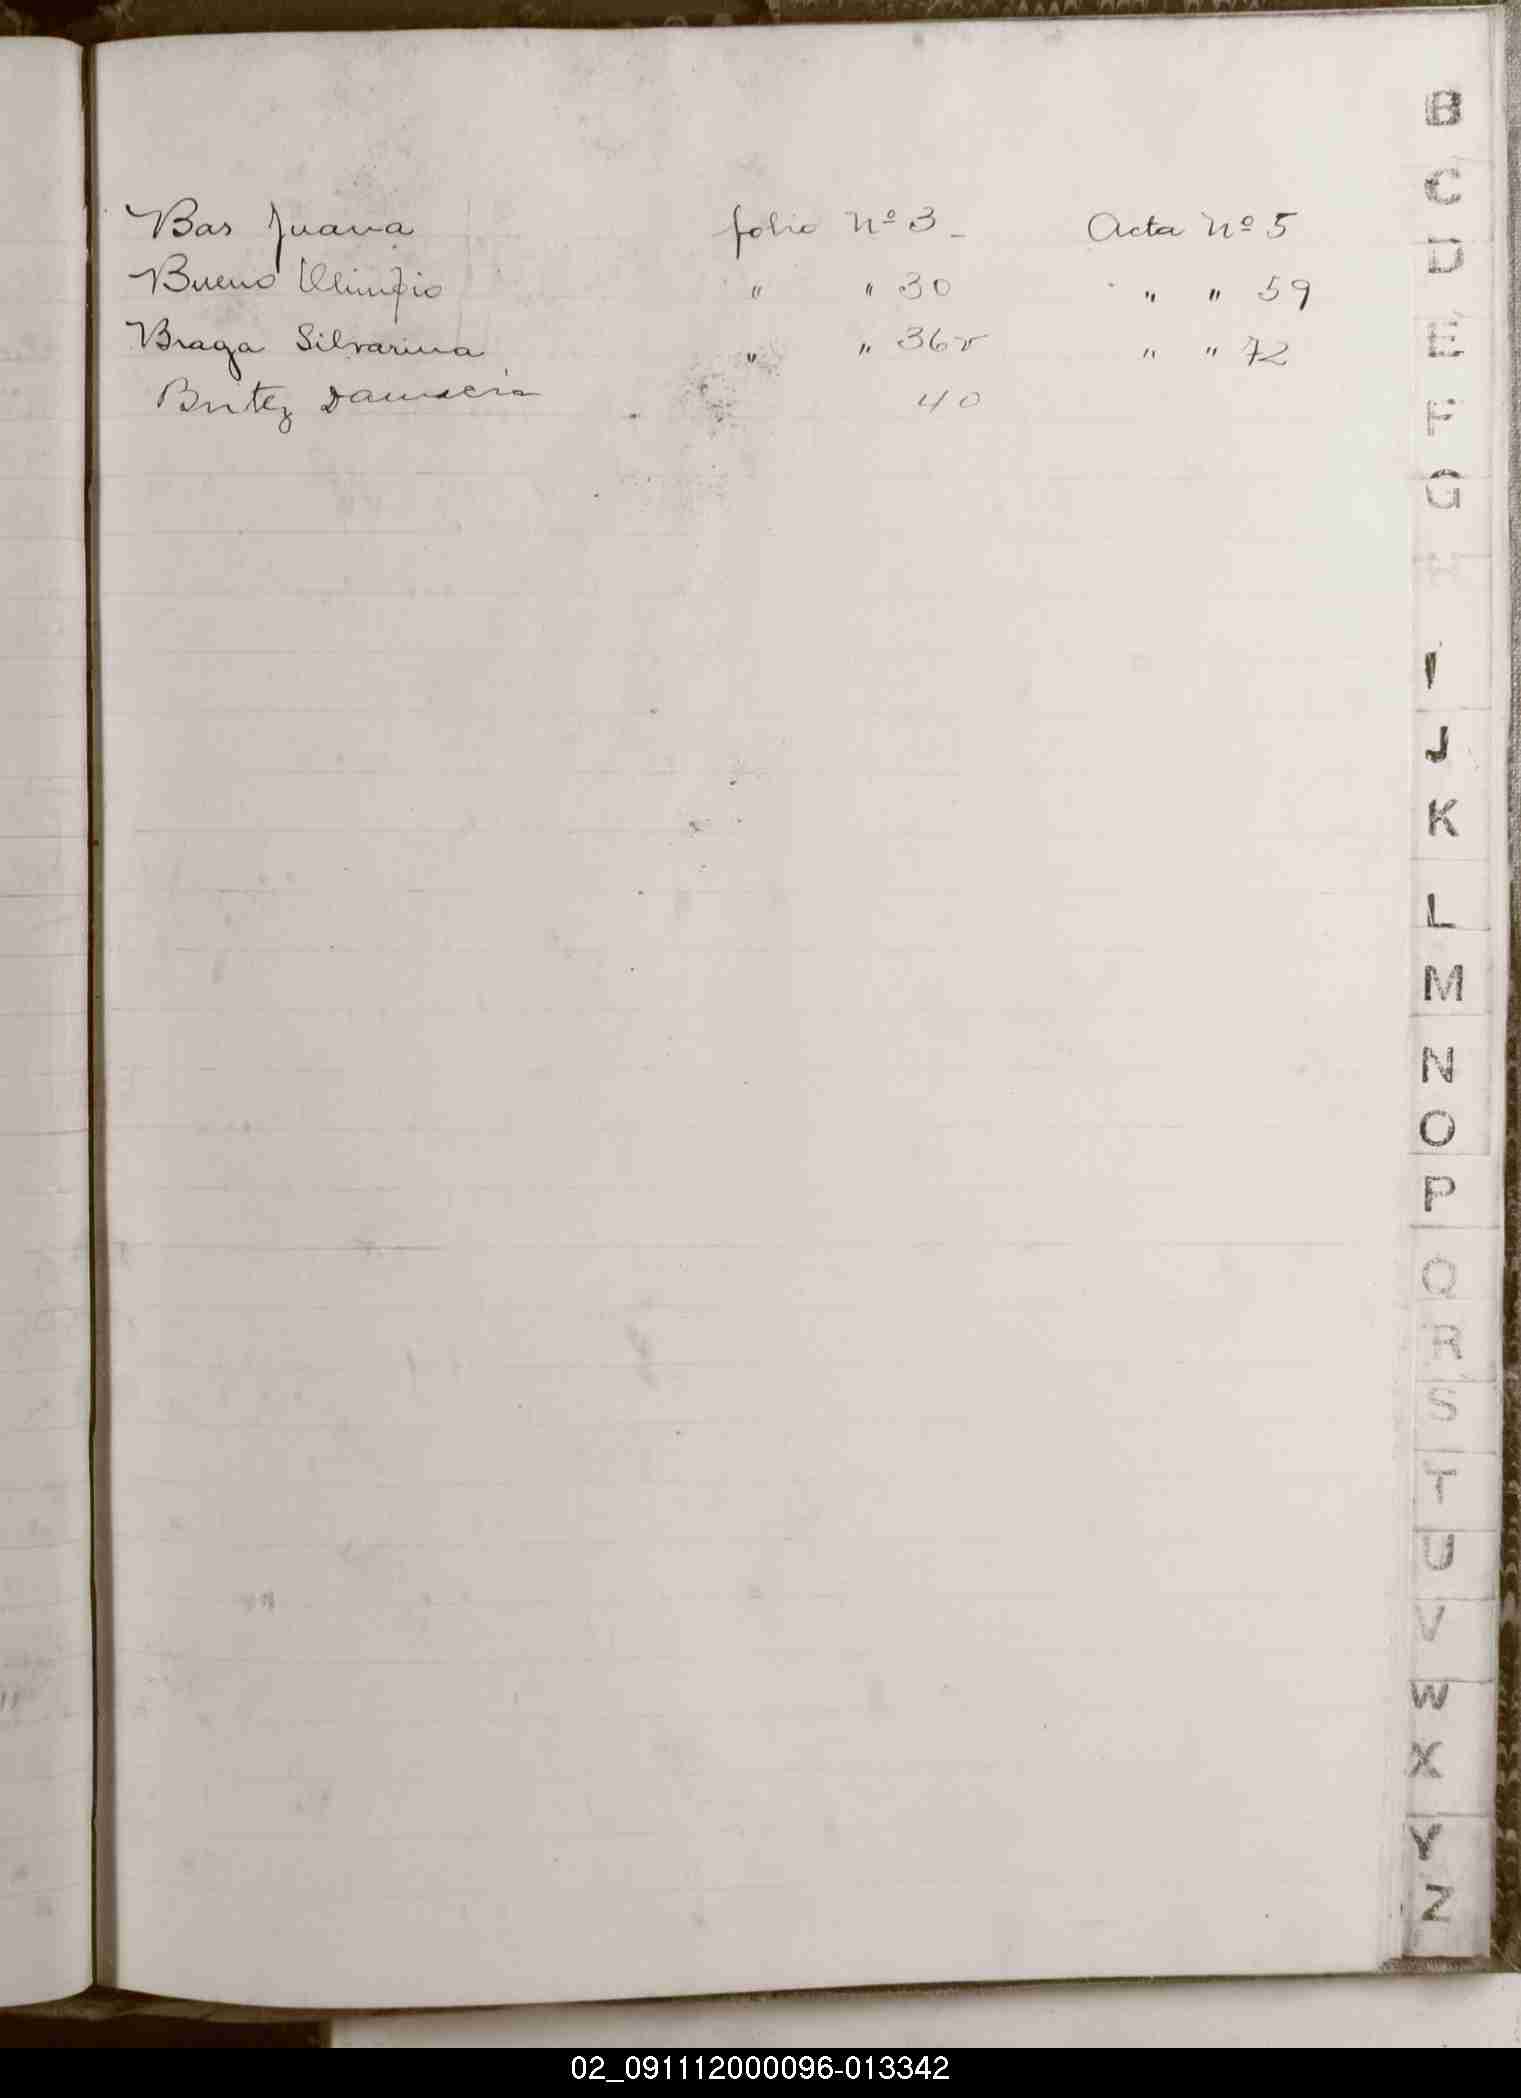 Bas Juana folio Nº 3 - Acta Nº 5
Bueno Olimpio " " 30 " " 59
Braga Silvarina " " 36v " " 72
Britez Damacia 40
B
C
D
E
F
G
H
I
J
K
L
M
N
O
P
Q
R
S
T
U
V
W
X
Y
Z
02_091112000096-013342